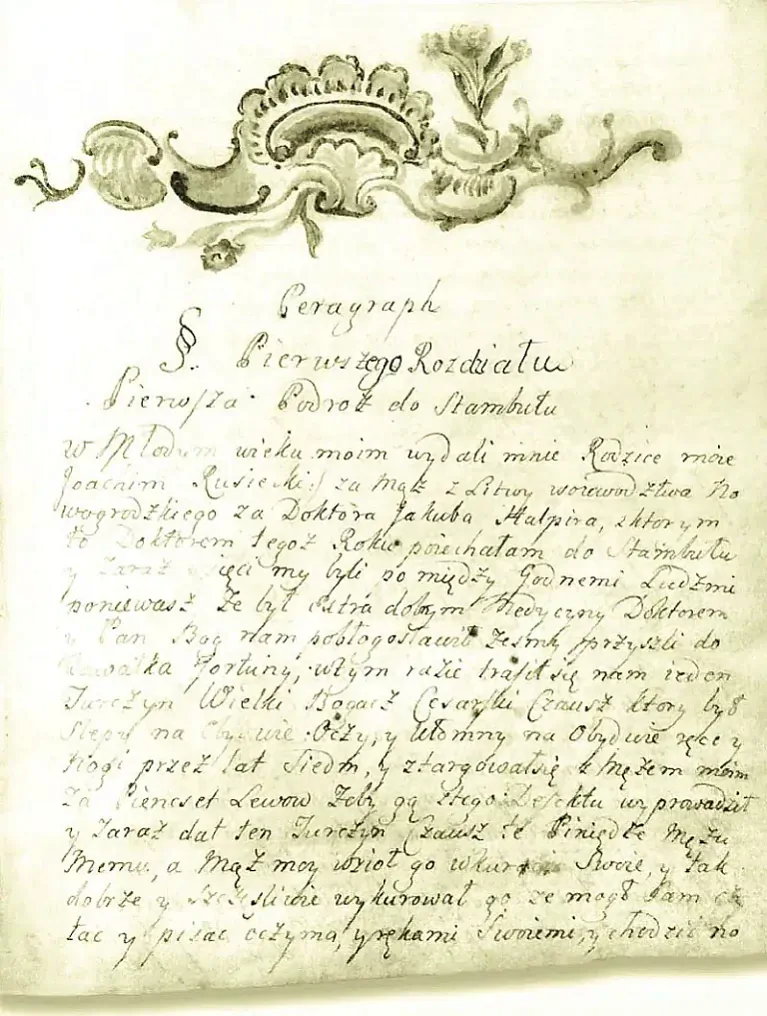 Peragraph
§. Pierwszego Rozdziału
Pierwsza Podroż do Stambułu
w Młodym wieku moim wydali mnie Rodzice moie
Joachim Rusiecki :/ za Mąż z Litwy woiewodztwa No
wogrodzkiego za Doktora Jakuba Halpira, z ktorym
to Doktorem tegoż Roku poiechałam do Stambułu
y Zaraz my byli pomiędzy Godnemi Ludzmi
ponieważ że był extra dobrym Medycyny Doktorem
y Pan Bog nam pobłogosławił żeśmy przyszli do
Kawałka Fortuny, w tym razie trafił się nam ieden
Turczyn Wielki Bogacz Cesarski Czausz ktory był
Slepy na Obydwie Oczy, y Ułomny na Obydwie ręce y
Nogi przez lat Siedm, y ztargował się z Mężem moim
Za Piencset Lewow żeby go z tego Defektu wyprowadził
y Zaraz dał ten Turczyn Czausz te Piniędze Mężu
Memu, a Mąż moy wzioł go w kuracią Swoie, y tak
dobrze y Szczęsliwie wykurował go że mogł Sam czy
tac y pisac oczyma, y rękami Swoiemi, y chodzić no